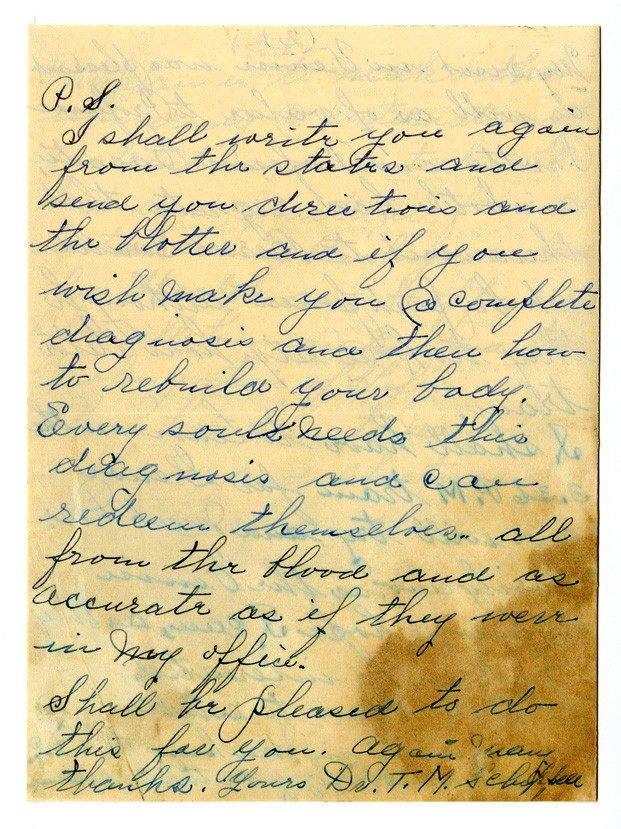 P.S.
I shall write you again
from the states and
send you directions and
the blotter and if you
wish make you a complete
diagnosis and then how
to rebuild your body.
Every souls needs this
diagnosis and can
redeem themselves.. all
from the blood and as
accurate as if they were
in my office.
Shall be pleased to do
this for you. Again many
thanks. Yours Dr. T. M.